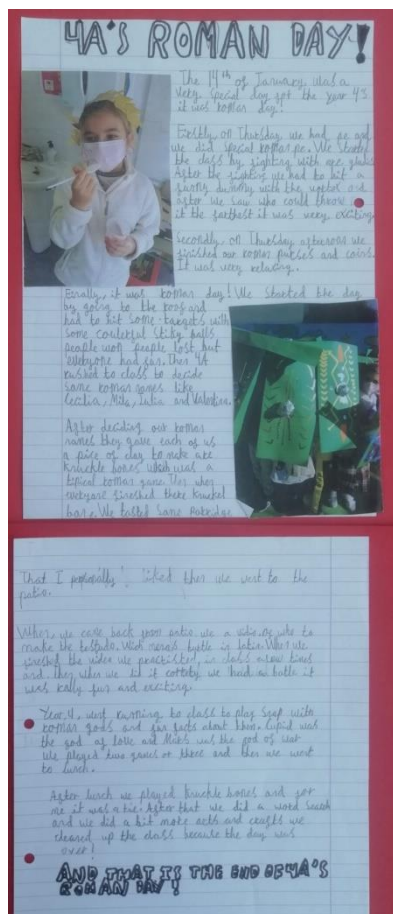 4A'S ROMAN DAY!
The 14th of January was a
very special day for the year 4s
it was roman day!
Firstly, on Thursday we had pe and
we did special roman pe. We started
the class by fighting with
After the fighting we had to hit a
dummy with the and
after we saw who could throw
it the farthest it was very exciting.
Secondly, on Thursday afternoon we
finished our roman purses and coins.
It was very relaxing.
Finally, it was roman day! We started the day
by going to the and
had to hit some targets with
some balls
people won people lost but
everyone had fun. Then 4A
rushed to class to decide
some roman names like
Cecilia, Mila, Julia and Valentina.
After deciding our roman
names they gave each of us
a of clay to make are
knuckle bones which was a
tipical roman game. Then when
there
We tasted some
That I liked then we went to the
patio.
When, we came back from patio we a
make the testudo. Which means turtle in latin. When we
the video we in class a few times
and then when we did it we had a battle it
was fun and exciting.
Year 4, went running to class to play snap with
roman gods and fun facts about them. Cupid was
the god of love and Mars was the god of war
We played two games or three and then we went
to lunch.
After lunch we played knuckle bones and for
me it was a tie. After that we did a word
and we did a bit more arts and crafts we
cleaned up the class because the day was
over!
AND THAT IS THE END OF 4A'S
ROMAN DAY!